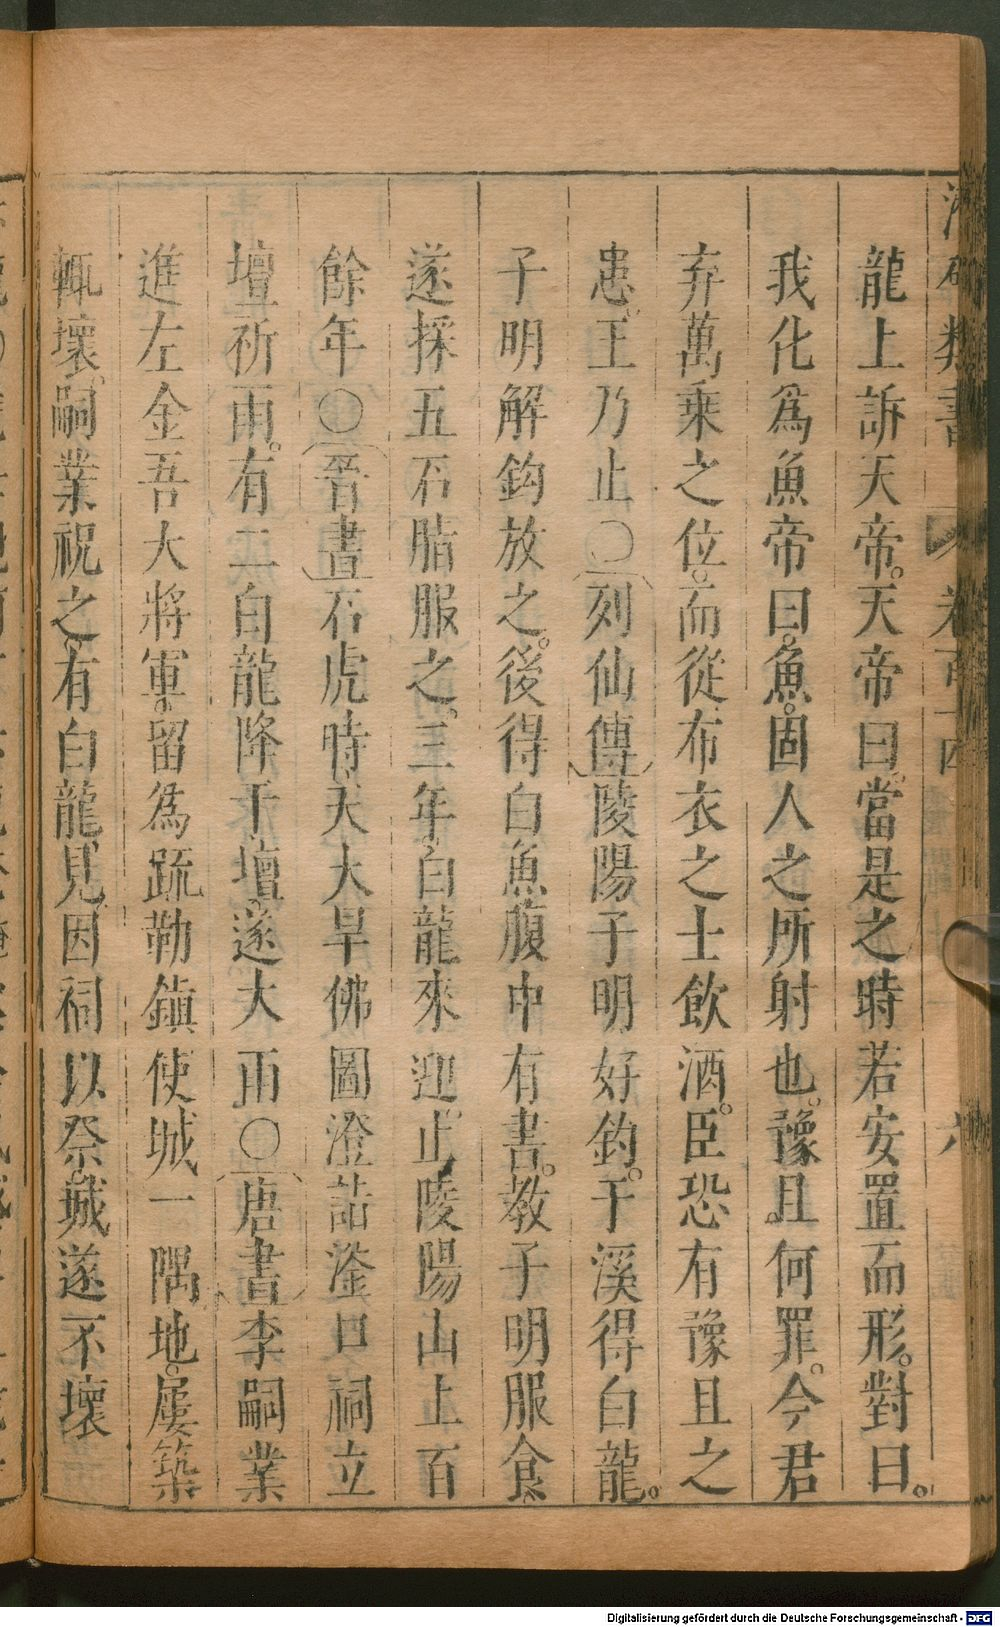 龍上訴天帝。天帝曰。當是之時若安置而形。對曰。
我化爲魚帝曰。魚。固人之所射也。豫且何罪。今君
弃萬乘之位。而從布衣之士飲酒。臣恐有豫且之
患。王乃止○列仙傳陵陽子明好釣。于溪得白龍。
子明解鈎放之。後得白魚腹中有書。教子明服食。
遂採五石脂服之。三年。白龍來迎。止陵陽山上百
餘年○晉書石虎時。天大旱佛圖澄詰滏口祠立
壇祈雨。有二白龍降于壇。遂大雨○唐書李嗣業
進左金吾大將軍。留爲疏勒鎮使城一隅地。屢築
輒壞。嗣業祝之。有白龍見。因祠以祭。城遂不壞
類書
卷百十四
六
Digitalisierung gefördert durch die Deutsche Forschungsgemeinschaft - DFG